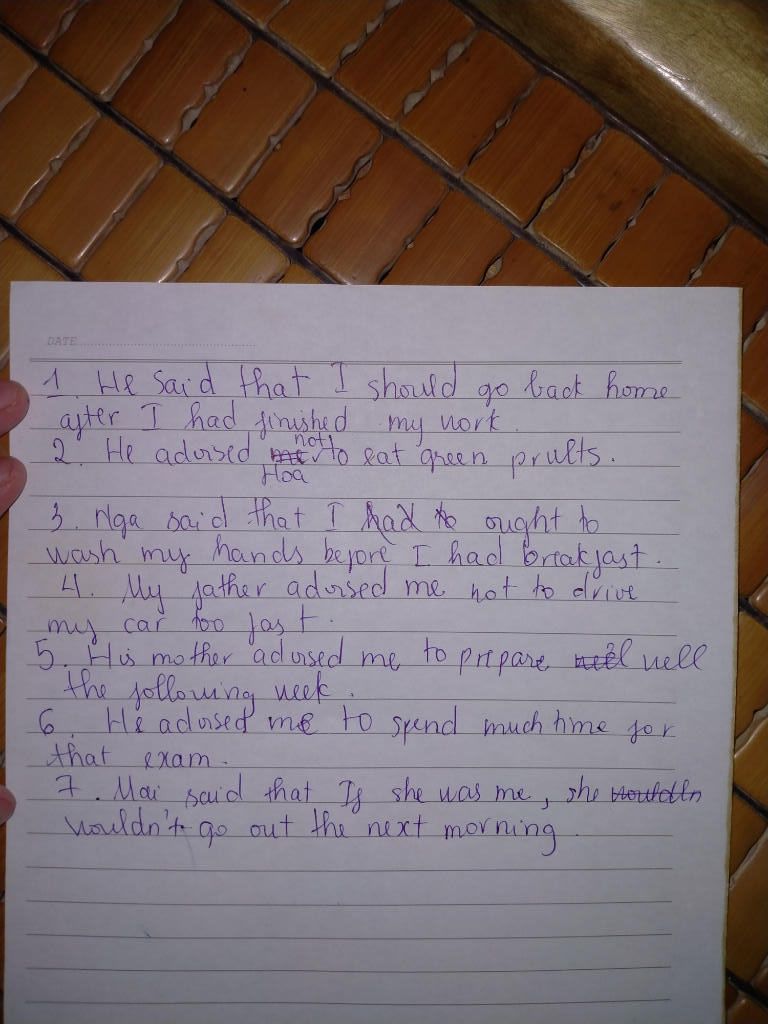 DATE
1. He said that I should go back home
after I had finished my work.
2. He advised Hoa not to eat green pruits.
3. Nga said that I ought to
wash my hands before I had breakfast.
4. My father advised me not to drive
my car too fast.
5. His mother advised me to prepare well
the following week.
6. He advised me to spend much time for
that exam.
7. Mai said that If she was me, she
wouldn't go out the next morning.